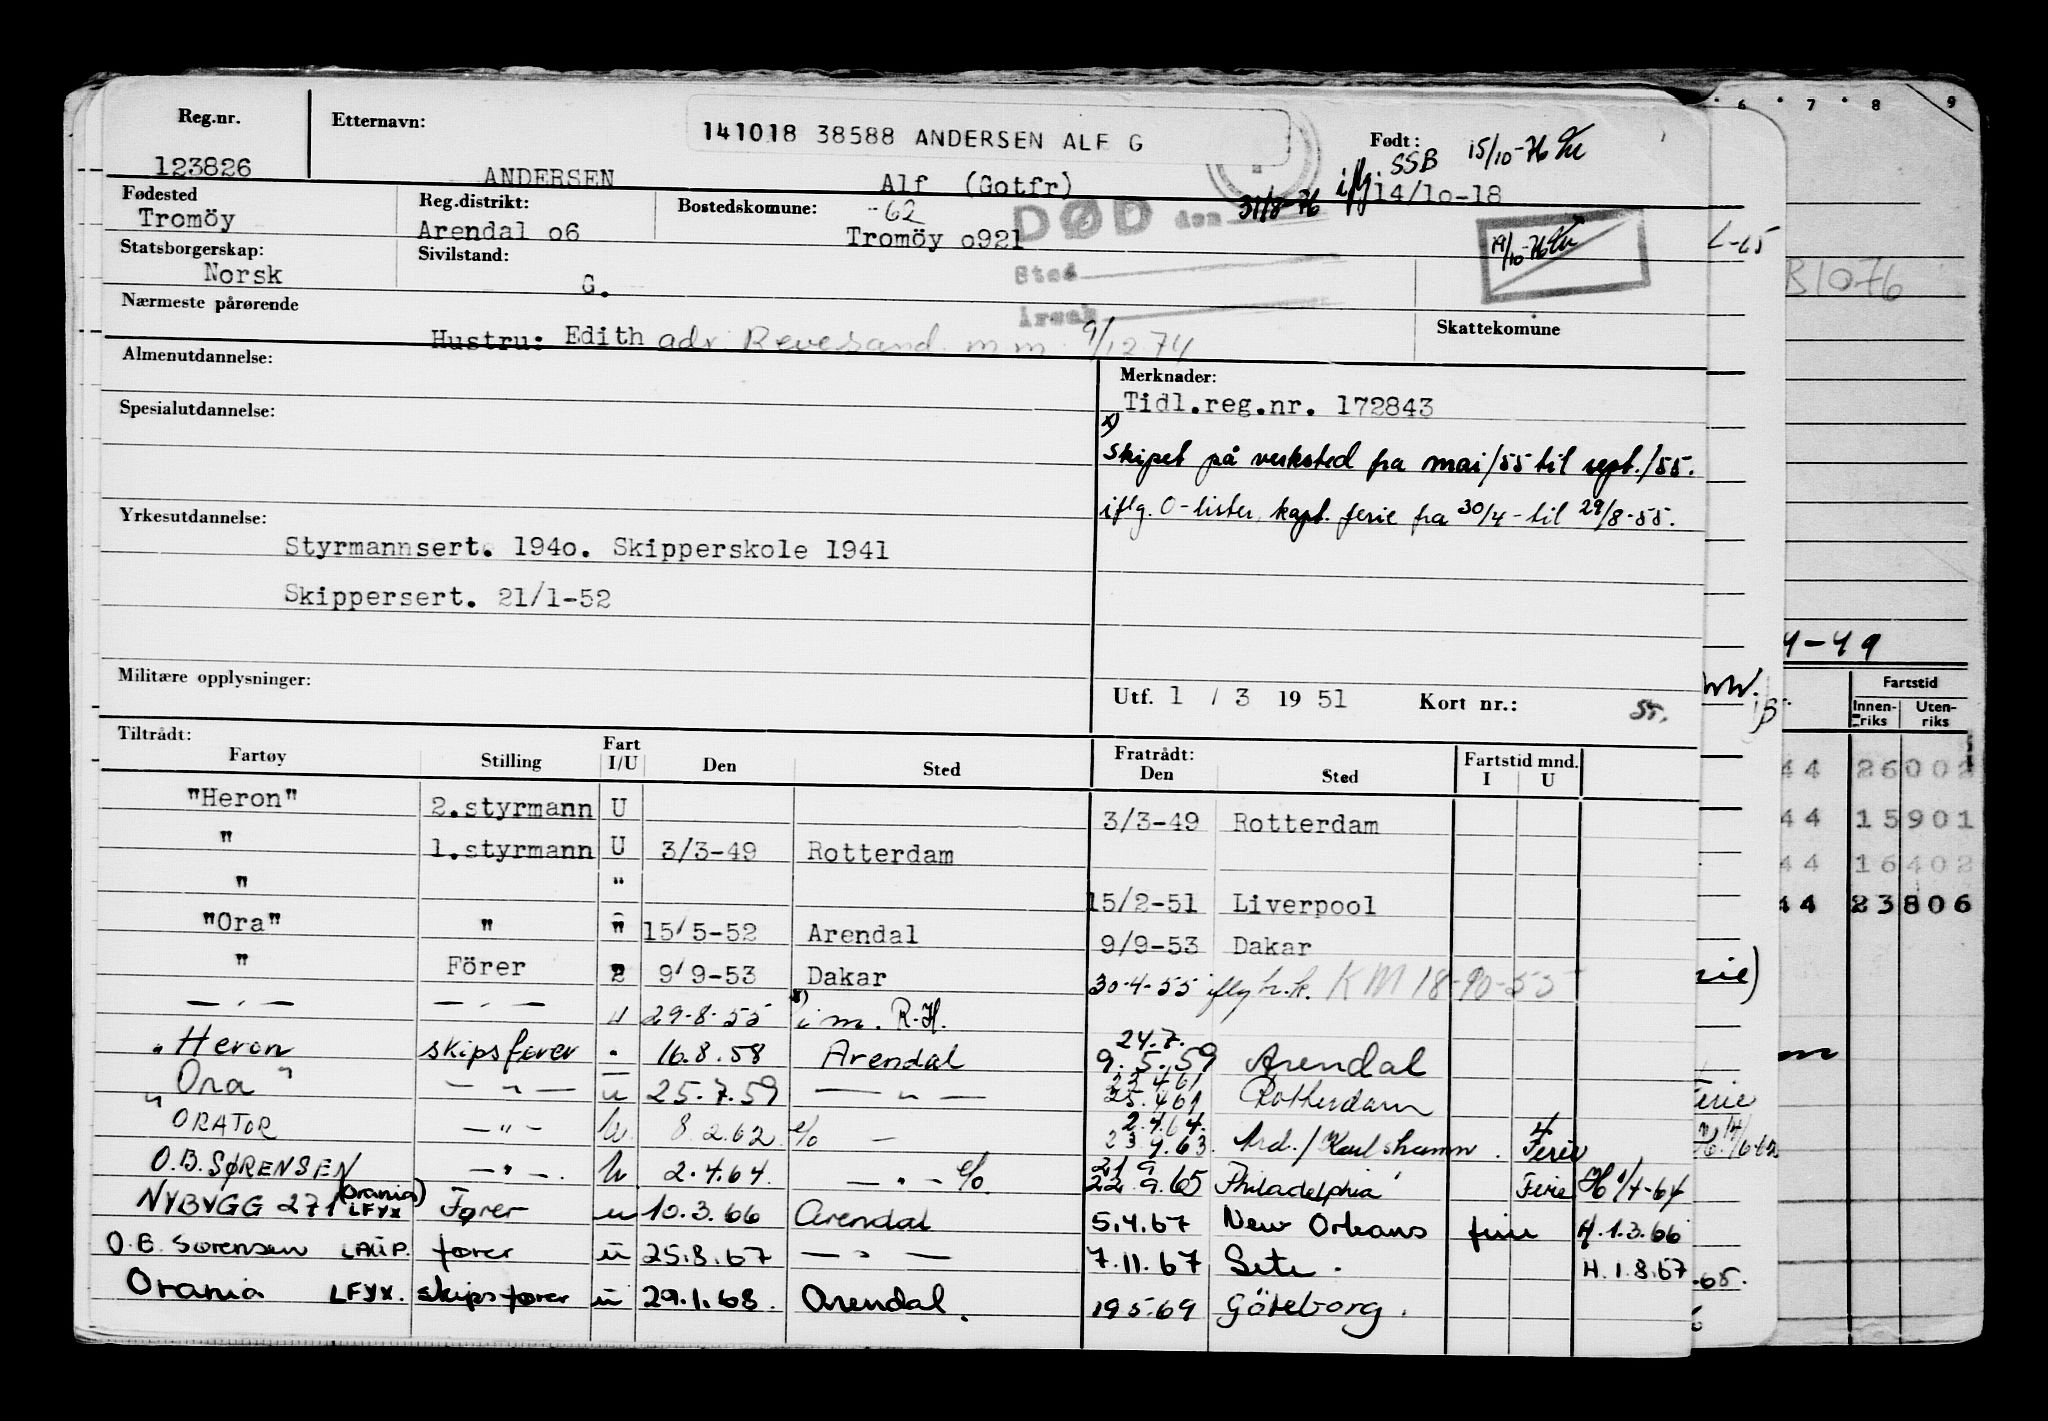 Reg.nr. Etternavn: 141018 38588 ANDERSEN ALF G Født: SSB 15/10-76
123826 ANDERSEN Alf (Gotfr) iflg. 14/10-18
Fødested Reg.distrikt: Bostedskomune: -62 DØD den 31/8-76
Tromöy Arendal o6 Tromöy o921
Statsborgerskap: Sivilstand: Sted 19/10-76
Norsk G.
Nærmeste pårørende Årsak
Hustru: Edith adr. Revesand m.m. 9/12 74 Skattekomune
Almenutdannelse: Merknader:
Tidl.reg.nr. 172843
Spesialutdannelse: x)
skipet på verksted fra mai/55 til sept./55.
iflg. O-lister, kapt. ferie fra 30/4- til 29/8-55.
Yrkesutdannelse:
Styrmannsert. 194o. Skipperskole 1941
Skippersert. 21/1-52
Militære opplysninger: Utf. 1 / 3 19 51 Kort nr.:
Tiltrådt: Fratrådt:
Fartøy Stilling Fart I/U Den Sted Den Sted Fartstid mnd. I U
"Heron" 2.styrmann U 3/3-49 Rotterdam
" 1.styrmann U 3/3-49 Rotterdam
" " 15/2-51 Liverpool
"Ora" " " 15/5-52 Arendal 9/9-53 Dakar
" Förer " 9/9-53 Dakar 30-4-55 iflg h.k. KM 18-10-55
— " — — " — u 29-8-55 x) i m. R.H.
" Heron skipsfører " 16.8.58 Arendal 24.7. 9.5.59 Arendal
" Ora " — " — u 25.7.59 — " — 22.4.61 25.4.61 Rotterdam
ORATOR — " — u 8.2.62 e/o — 2.4.64. 23.4.63 Ard./Karlshamn. 4 Ferie
O.B. SØRENSEN — " — u 2.4.64. — " — e/o 21.9. 22.9.65 Philadelphia Ferie H 1/4-64
NYBYGG 271 (Orania) LFYX Fører u 10.3.66 Arendal 5.4.67 New Orleans ferie H. 1.3.66
O. B. Sørensen fører u 25.8.67 — " — 7.11.67 Sete. H. 1.8.67
Orania LFYX. skipsfører u 29.1.68. Arendal. 19.5.69 Göteborg.
6 7 8 9
L-65
B1076
4-49
Fartstid
Innenriks Utenriks
44 26002
44 15901
44 16402
44 23806
Ferie
-65.